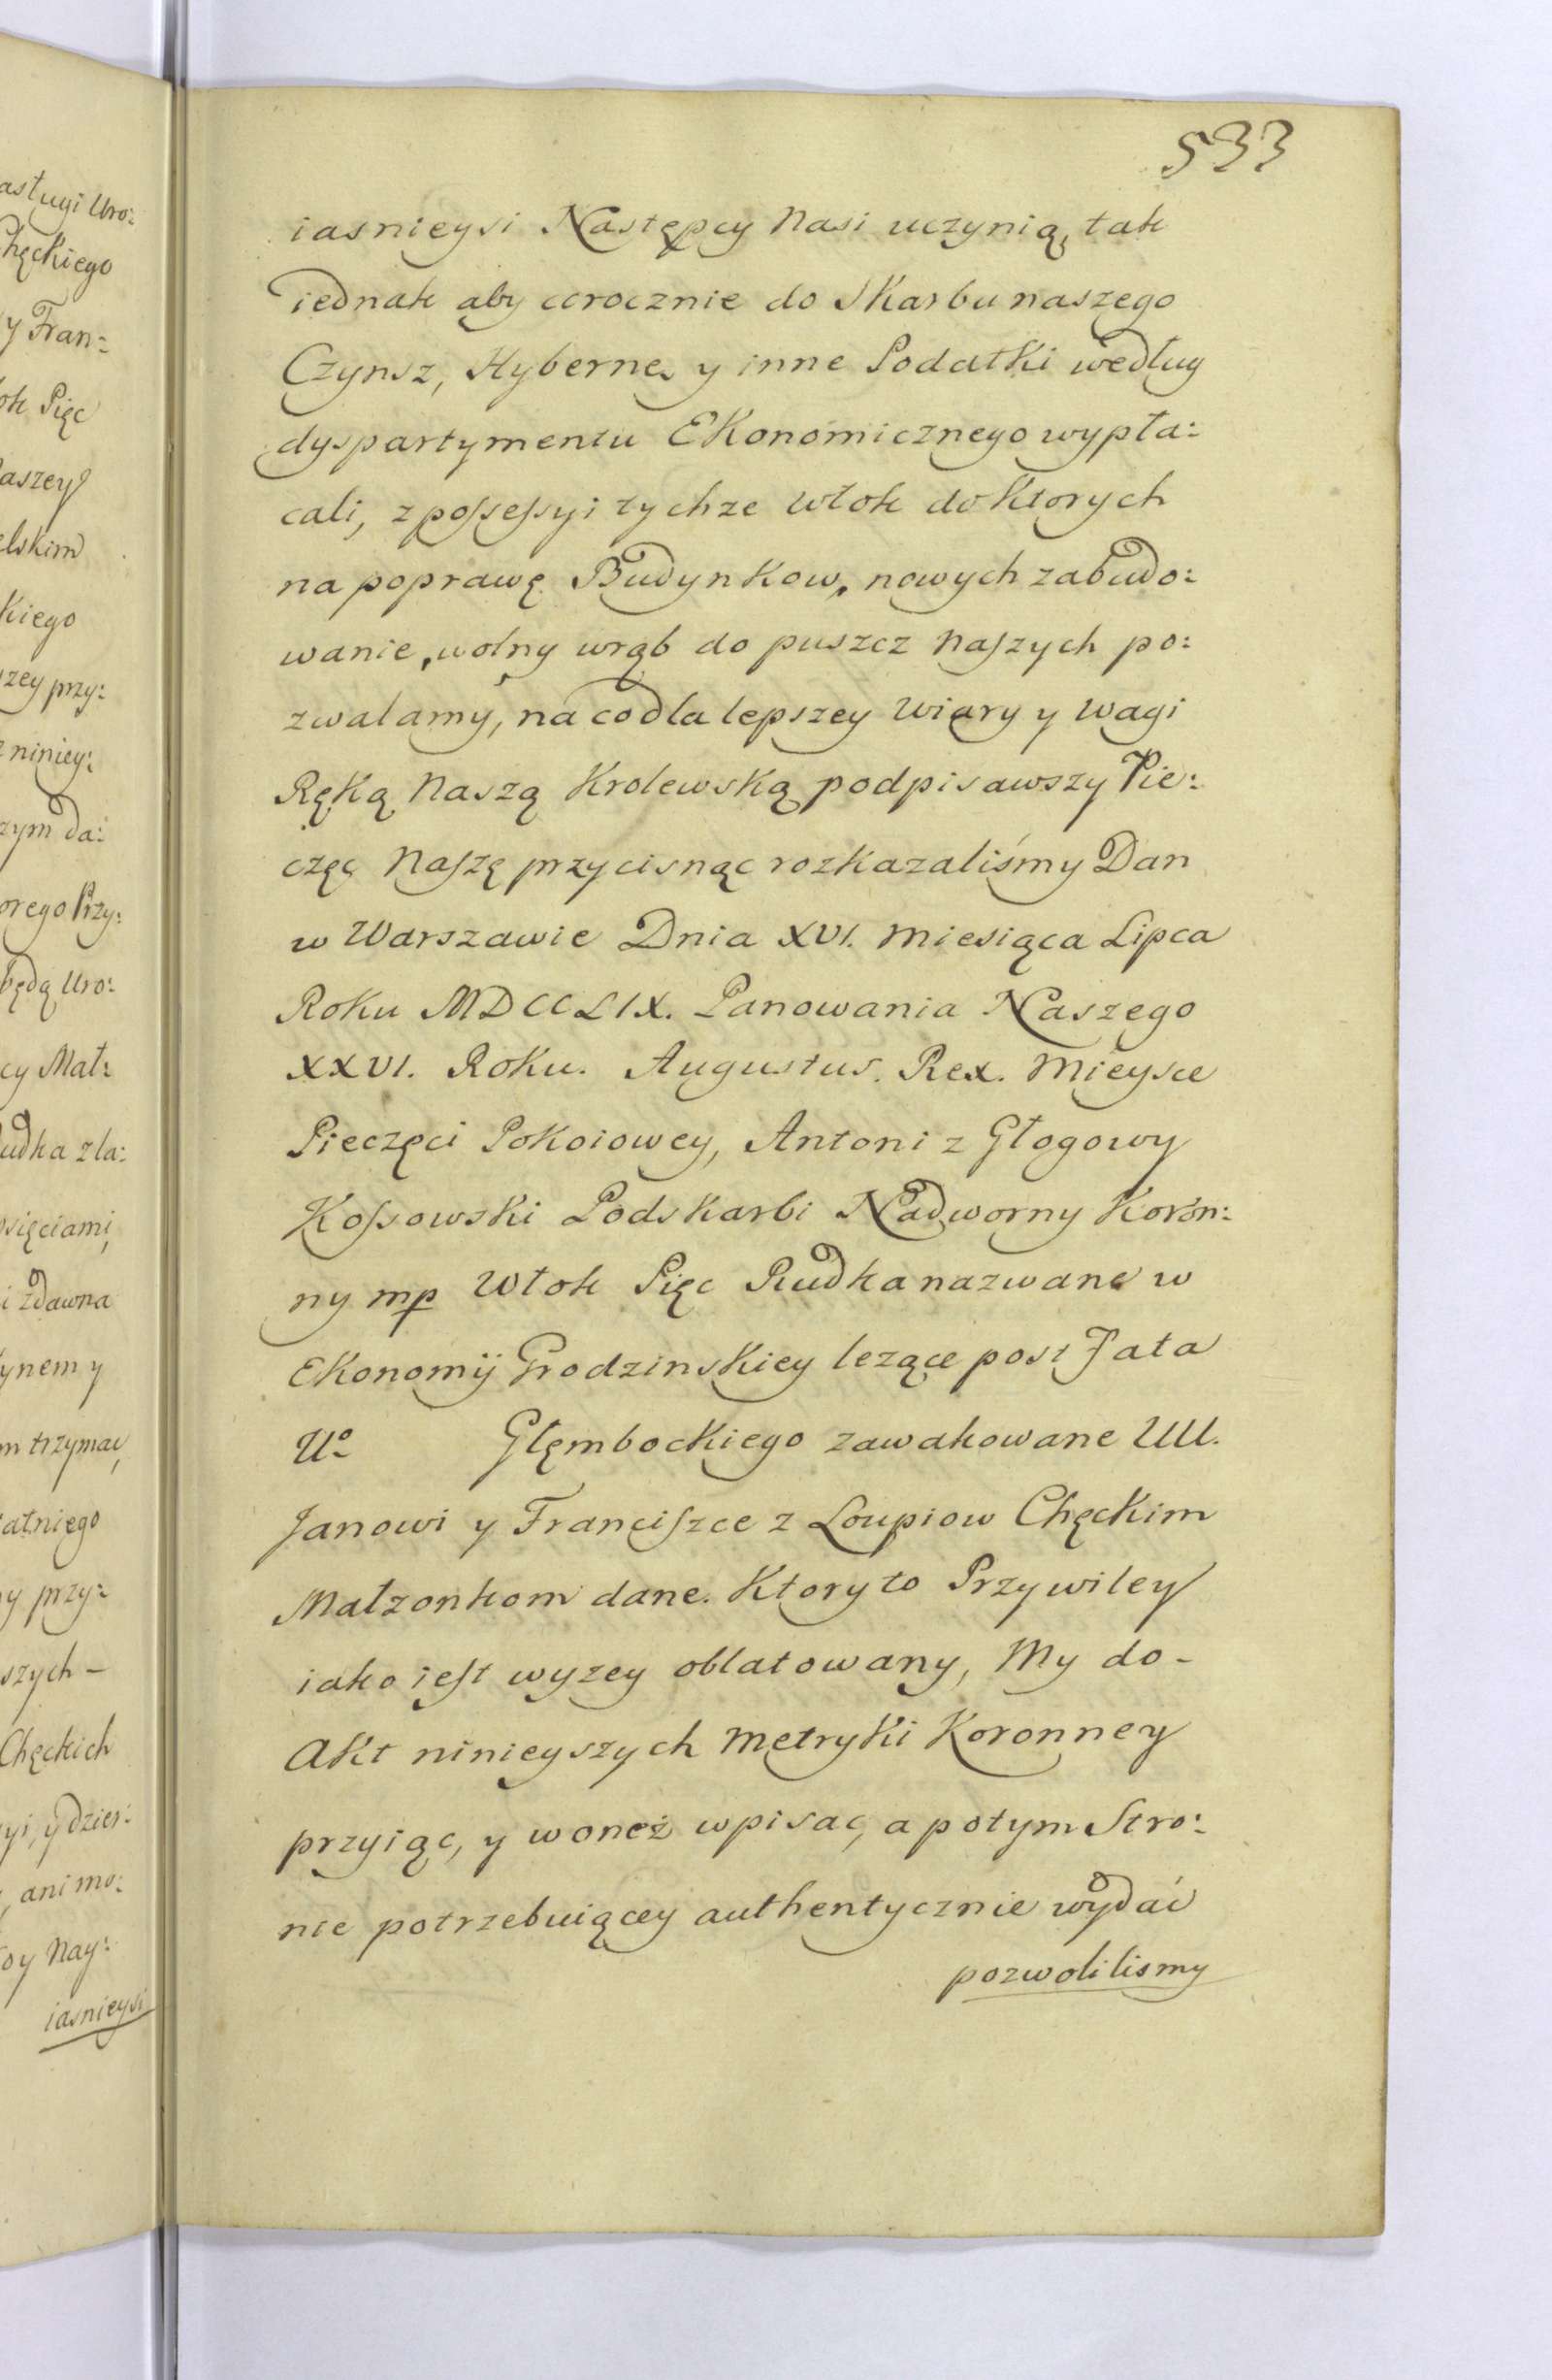 533
iasnieysi Następcy Nasi uczynią, tak
iednak aby corocznie do Skarbu naszego
Czynsz, Hyberne y inne Podatki według
dyspartymentu Ekonomicznego wypła:
cali, z possessyi tychze Włok do ktorych
na poprawę Budynkow, nowych zabudo:
wanie, wolny wrąb do puszcz naszych po:
zwalamy, na co dla lepszey Wiary y Wagi
Ręką Naszą Krolewską podpisawszy Pie:
częc Naszę przycisnąc rozkazaliśmy Dan
w Warszawie Dnia XVI. Miesiąca Lipca
Roku MDCCLIX. Panowania Naszego
XXVI. Roku. Augustus. Rex. Mieysce
Pieczęci Pokoiowey, Antoni z Głogowy
Kossowski Podskarbi Nadworny Koron:
ny mp Włok Pięc Rudka nazwane w
Ekonomij Grodzinskiey lezące post Fata
Uo Głęmbockiego zawakowane UU.
Janowi y Franciszce z Loupiow Chęckim
Małzonkom dane. Ktory to Przywiley
iako iest wyzey oblatowany, My do-
Akt ninieyszych Metryki Koronney
przyiąc, y w oneż wpisac, a potym Stro:
nie potrzebuiącey authentycznie wydać
pozwolilismy
asługi Uro:
hęckiego
y Fran:
ok Pięc
aszey
elskim
kiego
szey przy:
z niniey:
zym da:
orego Przy:
będą Uro:
cy Mał:
udka z la:
osięciami,
i zdawna
ynem y
m trzymac,
atniego
y przy:
szych -
Chęckich
yi, y dzier:
, ani mo:
oy Nay:
iasnieysi